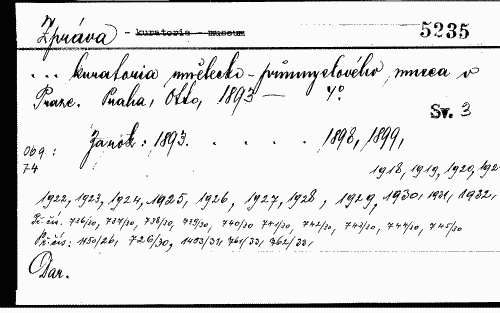 Zpráva - kuratoria - museum 5235
... kuratoria umělecko-průmyslového musea v
Praze. Praha, Otto, 1893 — 4°
Sv. 3
Za rok: 1893. . . . . . 1898, 1899,
Obg: 1918, 1919, 1920, 192
74
1922, 1923, 1924, 1925, 1926, 1927, 1928, 1929, 1930, 1931, 1932,
Př. čís. 736/30, 737/30, 738/30, 739/30, 740/30 741/30, 742/30, 743/30, 744/30, 745/30
Př. čís: 1150/26, 726/30, 1493/31, 761/33, 762/33,
Dar.